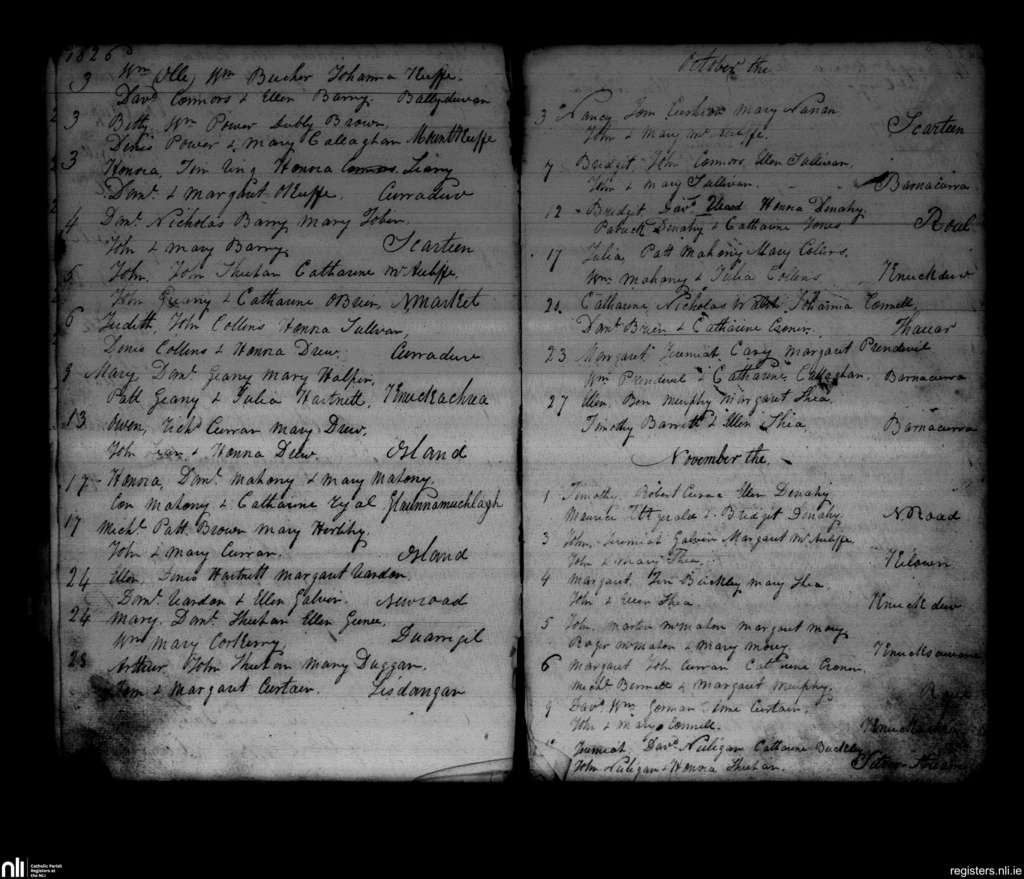 1826
3 Wm Wm Bucher Johanna Keiffe.
Davd Connors & Ellen Barry. Ballyduvan
3 Betty, Wm Power Dubly Brown.
Denis Power & Mary Callaghan Mount Keiffe
3 Honora, Tim Ring Honora Connors Liany
Danl & Margaret O'Keiffe. Curraduv
4 Danl Nicholas Barry, Mary Tobin.
John & Mary Barry. Scarteen
5 John, John Sheehan Catharine McAuliffe.
John Geany & Catharine O Brien NMarket
6 Judith, John Collins Honna Sullivan,
Denis Collins & Honna Drew. Curraduv
9 Mary Danl Geany Mary Halpin,
Patt Geany & Julia Hartnett, Knuckachrea
13 Owen, Richd Curran Mary Drew.
John & Honna Drew. Island
17 Honora, Danl Mahony & Mary Mahony.
Con Mahony & Catharine Ryal Glaunnamuchlagh
17 Michl Patt Brown Mary Herlihy.
John & Mary Curran. Island
24 Ellen, Denis Hartnett Margaret Reardon
Danl Reardon & Ellen Galvin. Newroad
24 Mary. Danl Sheehan Ellen
Wm Mary Corkerry Duarrigil
25 Arthur, John Sheehan Mary Duggan.
& Margaret Curtain. Lisdangan
October the
3 Nancy Tom Mary Nanan
John & Mary McKeiffe. Scarteen
7 Bridgit, John Connors, Ellen Sullivan,
John & Mary Sullivan. Barnacurra
12 Bridgit Davd Honna Denahy
Patrick Denahy & Catharine Jones
17 Julia, Patt Mahony Mary Colins.
Wm Mahony & Julia Collins Knuckduv
20. Catharine, Nicholas Walsh Johanna Connell,
Danl Brien & Catharine Croner.
23 Margaret Jeremiah Cary Margaret Prendevil
Wm Prendevil & Catharine Callaghan. Barnacurra
27 Ellen, Ben Murphy Margaret Shea.
Timothy Barrett & Ellen Shea. Barnacurra
November the.
1 Timothy Robert Curran Ellen Denahy
Maurice Fitzgerald & Bridgit Denahy N.Road
3 John, Jeremiah Galvin Margaret McAuliffe
John & Mary Shea, Kilowen
4 Margaret, Buckley Mary Shea
John & Ellen Shea Knuckduv
5 John, Martin McMahon Margaret Mary
Roger McMahon & Mary
6 Margaret John Curran Catharine Croner.
Michl & Margaret Murphy.
9 Davd Wm Gorman Curtain.
John & Mary Connell.
Jeremiah Davd Nuligan Catharine Buckley
John Nuligan & Honora Sheehan.
nli
Catholic Parish
Registers at
the NLI
registers.nli.ie